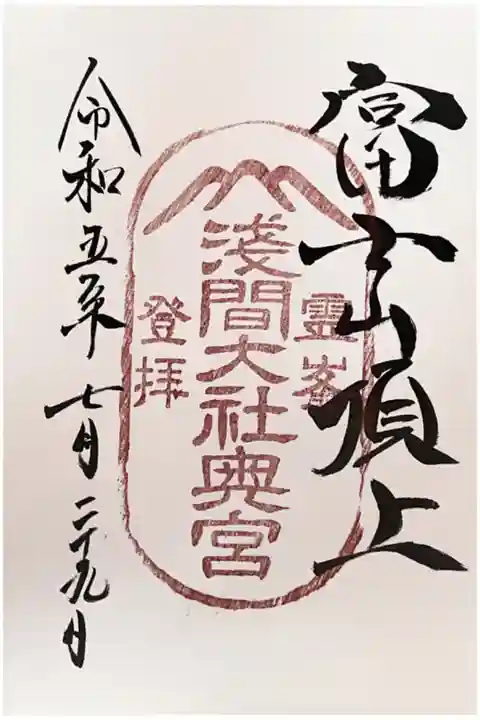 富士山頂上
霊峯
淺間大社奥宮
登拝
令和五年七月二十九日